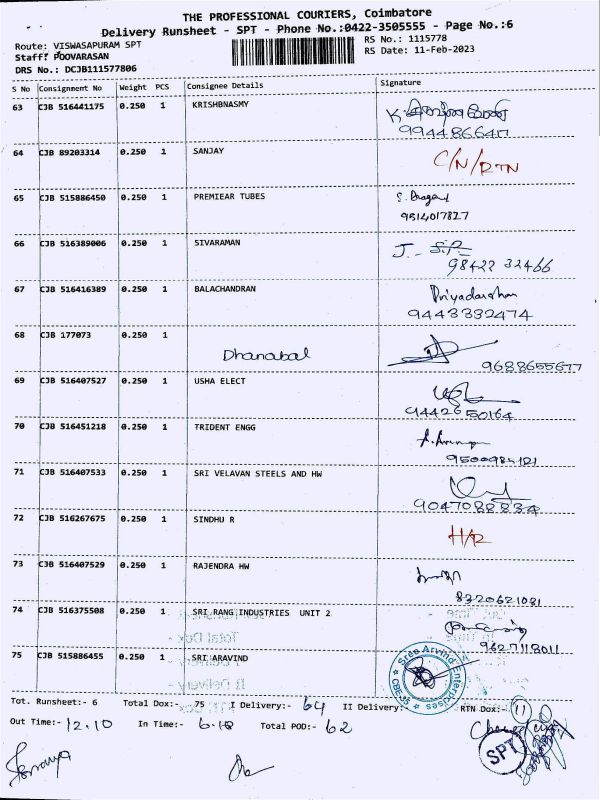 THE PROFESSIONAL COURIERS, Coimbatore
Delivery Runsheet - SPT - Phone No.:0422-3505555 - Page No.:6
Route: VISWASAPURAM SPT
RS No.: 1115778
Staff: POOVARASAN
RS Date: 11-Feb-2023
DRS No.: DCJB111577806
S No Consignment No Weight PCS Consignee Details Signature
63 CJB 516441175 0.250 1 KRISHBNASMY
64 CJB 89203314 0.250 1 SANJAY C/N/RTN
65 CJB 515886450 0.250 1 PREMIEAR TUBES
9514017827
66 CJB 516389006 0.250 1 SIVARAMAN
98422 32466
67 CJB 516416389 0.250 1 BALACHANDRAN Priyadarshan
9443332474
68 CJB 177073 0.250 1
Dhanabal
9688655677
69 CJB 516407527 0.250 1 USHA ELECT
9442650164
70 CJB 516451218 0.250 1 TRIDENT ENGG
9500984121
71 CJB 516407533 0.250 1 SRI VELAVAN STEELS AND HW
9047088834
72 CJB 516267675 0.250 1 SINDHU R
73 CJB 516407529 0.250 1 RAJENDRA HW
8220621021
74 CJB 516375508 0.250 1 SRI RANG INDUSTRIES UNIT 2
9627118011
75 CJB 515886455 0.250 1 SRI ARAVIND
Sree Arvind Enterprises
CBE-35
Tot. Runsheet:- 6 Total Dox:- 75 I Delivery:- 64 II Delivery:- RTN Dox:- 11
Out Time:- 12.10 In Time:- 6.10 Total POD:- 62
SPT